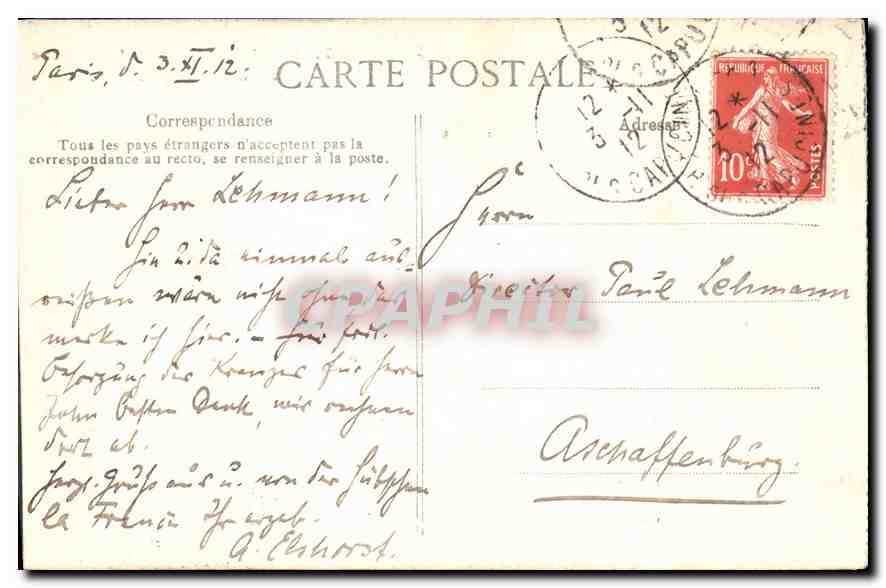 Paris, d. 3.XI.12.
CARTE POSTALE
Correspondance
Adresse
Tous les pays étrangers n'acceptent pas la
correspondance au recto, se renseigner à la poste.
RÉPUBLIQUE FRANÇAISE
10c
POSTES
12 *
3 -11
12
PL. CAPUCIN
Lieber Herr Lehmann!
einmal aus-
reißen wäre nicht ohne das
merke ich hier. – Für frdl.
Besorgung des Kranzes für Herrn
besten Dank, wir rechnen
dort ab.
Herzl. Gruß aus u. von der hübschen
la France Ihr ergeb.
A. Elshorst.
Herrn
Director Paul Lehmann
Aschaffenburg.
CPAPHIL